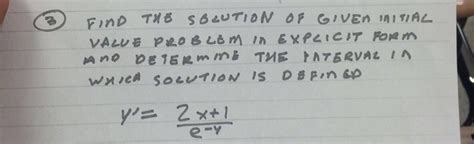 ③ FIND THE SOLUTION OF GIVEN INITIAL
VALUE PROBLEM IN EXPLICIT FORM
AND DETERMINE THE INTERVAL IN
WHICH SOLUTION IS DEFINED
y' = 2x+1 / e^-y